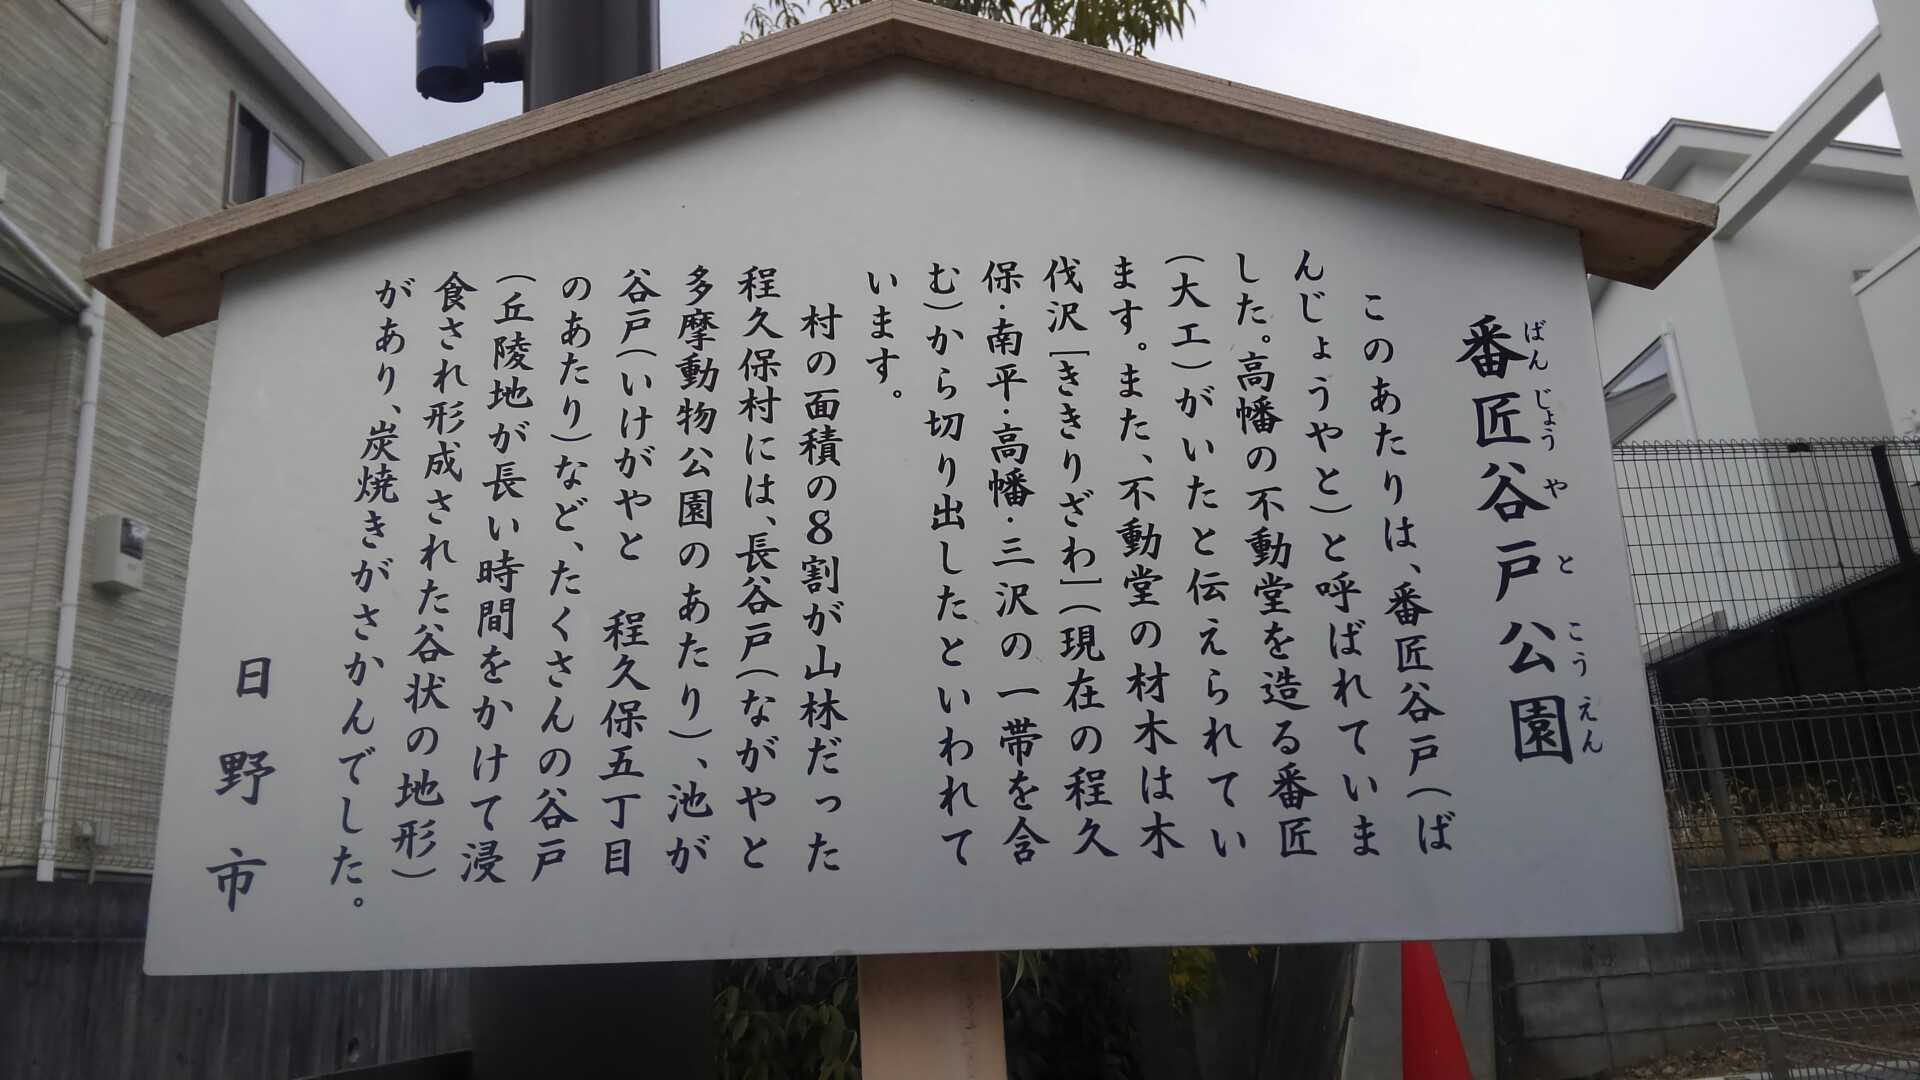 番匠谷戸公園
ばんじょうやとこうえん
このあたりは、番匠谷戸(ば
んじょうやと)と呼ばれていま
した。高幡の不動堂を造る番匠
(大工)がいたと伝えられてい
ます。また、不動堂の材木は木
伐沢[ききりざわ](現在の程久
保・南平・高幡・三沢の一帯を含
む)から切り出したといわれて
います。
村の面積の8割が山林だった
程久保村には、長谷戸(ながやと
多摩動物公園のあたり)、池が
谷戸(いけがやと 程久保五丁目
のあたり)など、たくさんの谷戸
(丘陵地が長い時間をかけて浸
食され形成された谷状の地形)
があり、炭焼きがさかんでした。
日野市